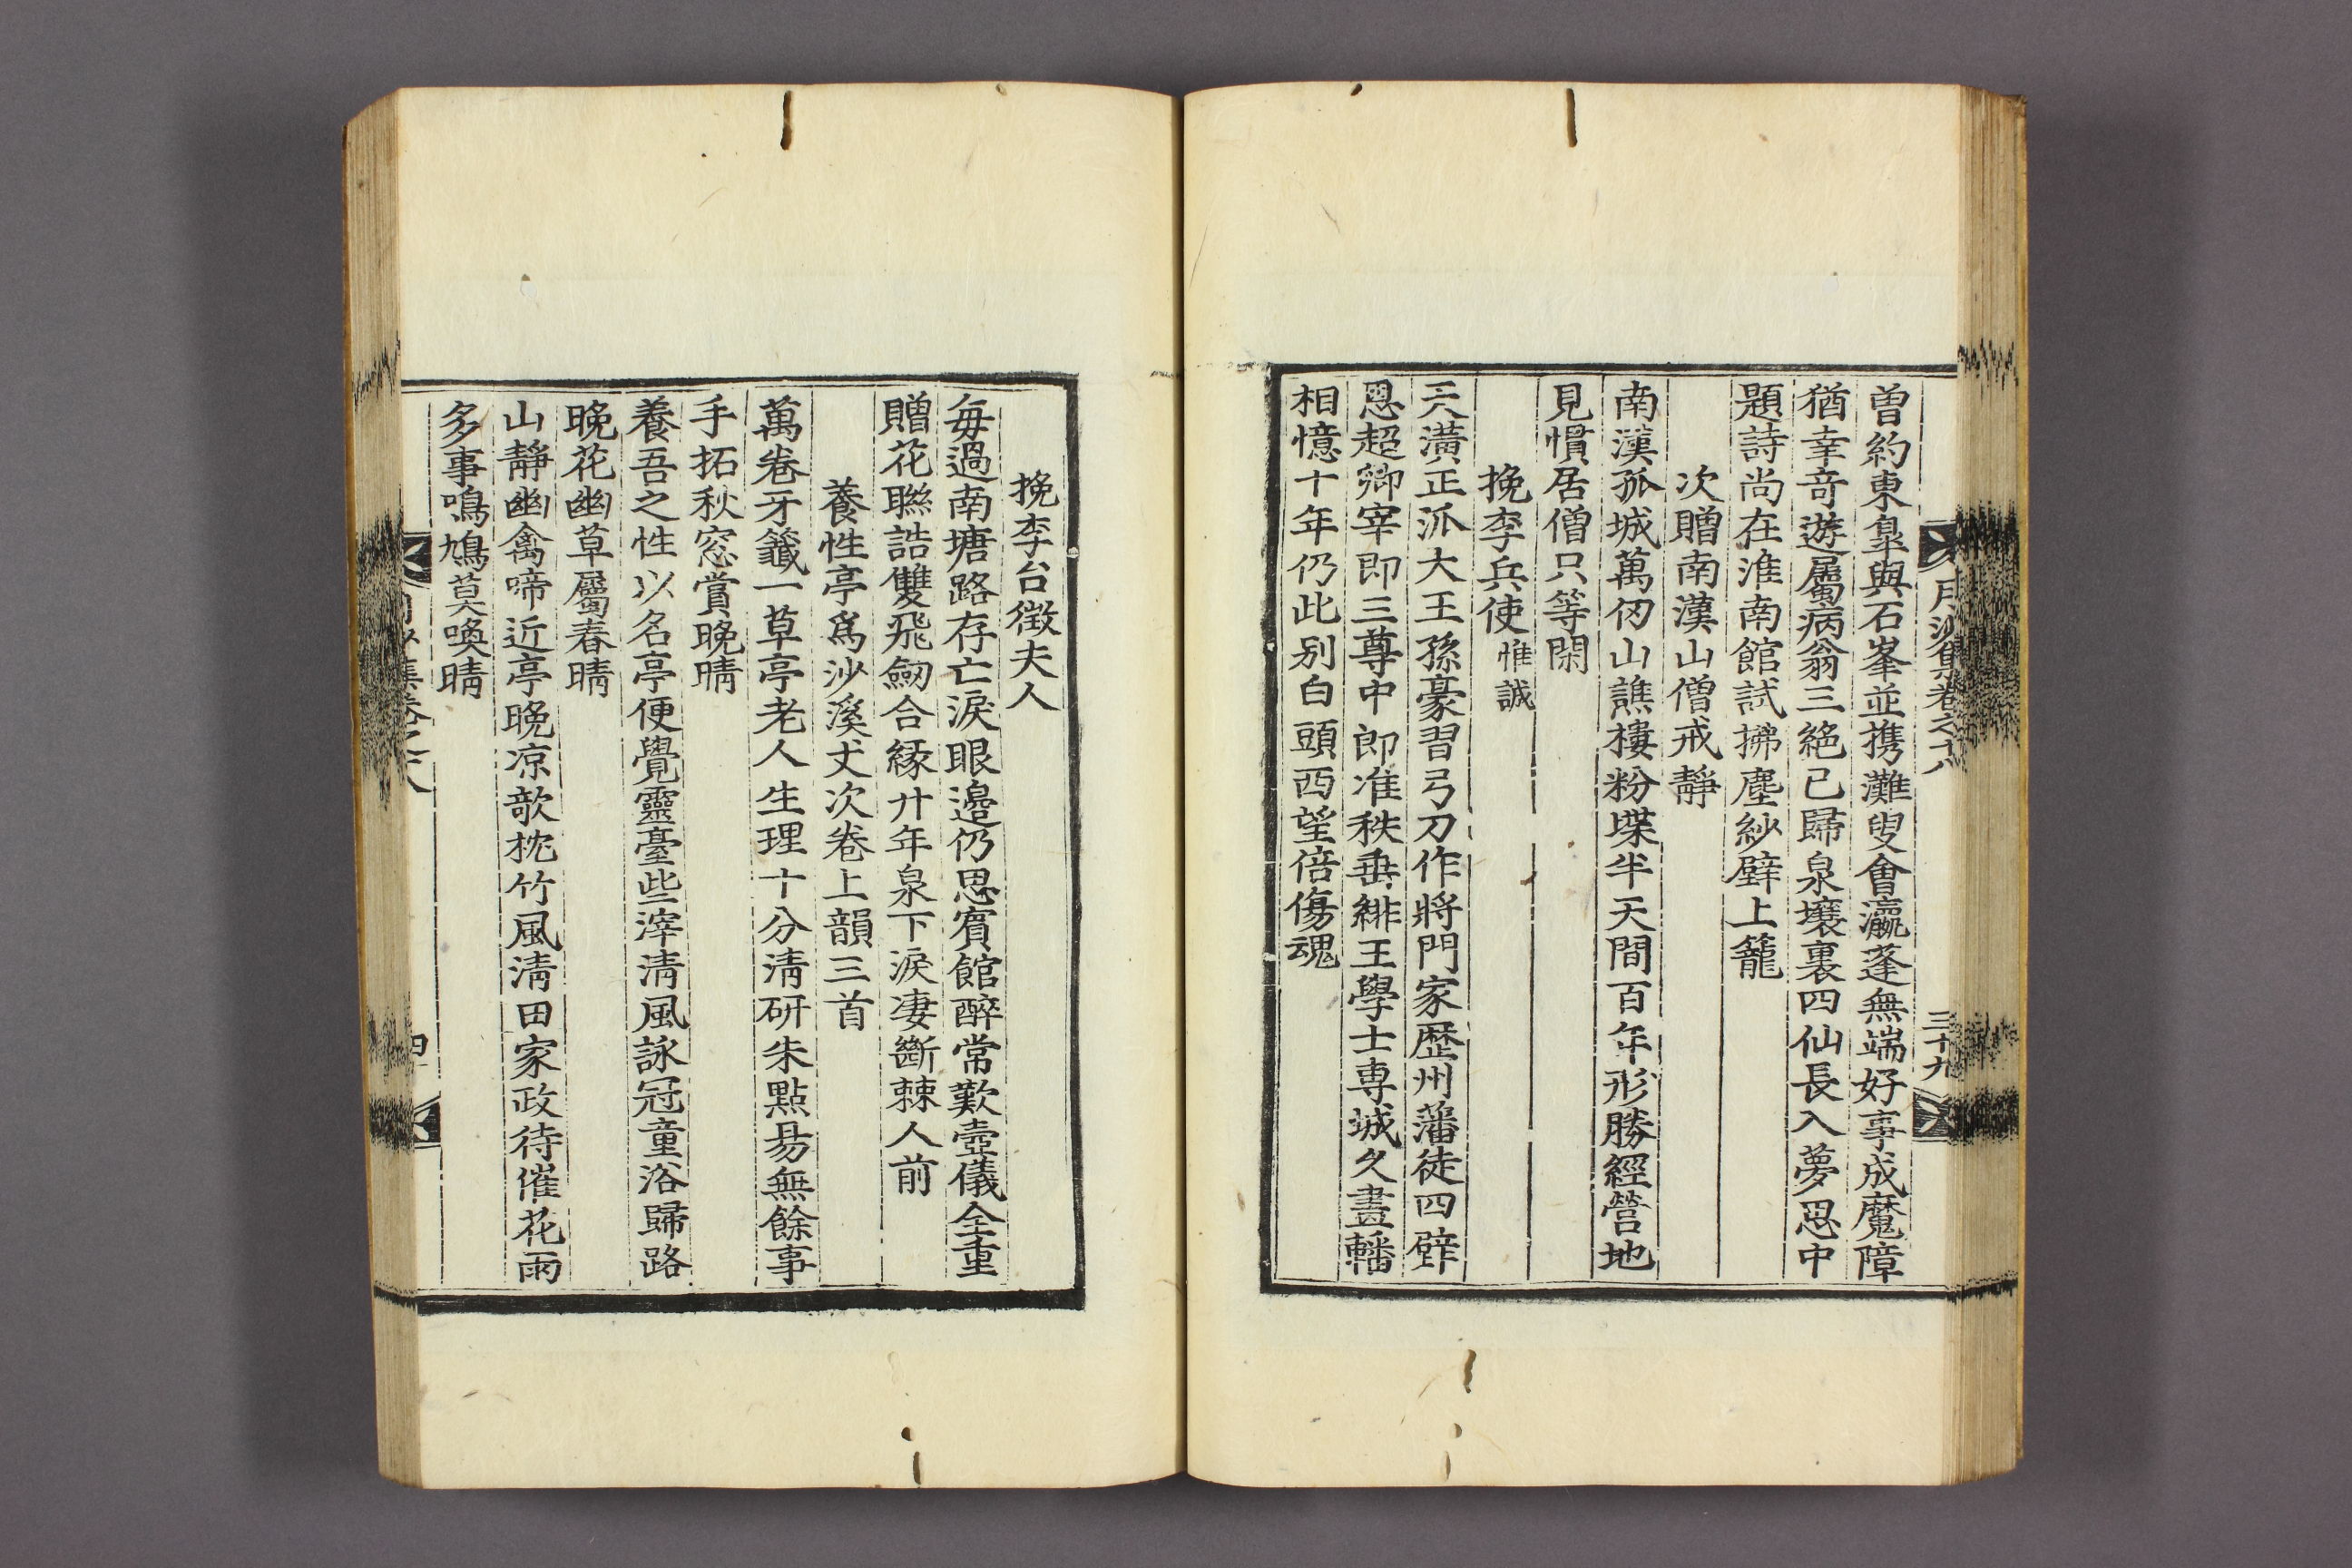 月沙集卷之十八
三十九
曾約東臯與石峯並携灘叟會瀛蓬無端好事成魔障
猶幸奇遊屬病翁三絶已歸泉壤裏四仙長入夢思中
題詩尚在淮南館試拂塵紗壁上籠
次贈南漢山僧戒靜
南漢孤城萬仞山譙樓粉堞半天間百年形勝經營地
見慣居僧只等閑
挽李兵使惟誠
天潢正派大王孫豪習弓刀作將門家歷州藩徒四壁
恩超卿宰即三尊中郞准秩垂緋玉學士專城久畫轓
相憶十年仍此别白頭西望倍傷魂
挽李台徵夫人
每過南塘路存亡淚眼邊仍思賓館醉常歎壼儀全重
贈花聯誥雙飛劒合緣廿年泉下淚凄斷棘人前
養性亭爲沙溪丈次卷上韻三首
萬卷牙籤一草亭老人生理十分淸研朱點昜無餘事
手拓秋窓賞晩晴
養吾之性以名亭便覺靈臺些滓淸風詠冠童浴歸路
晩花幽草屬春晴
山靜幽禽啼近亭晩凉欹枕竹風淸田家政待催花雨
多事鳴鳩莫喚晴